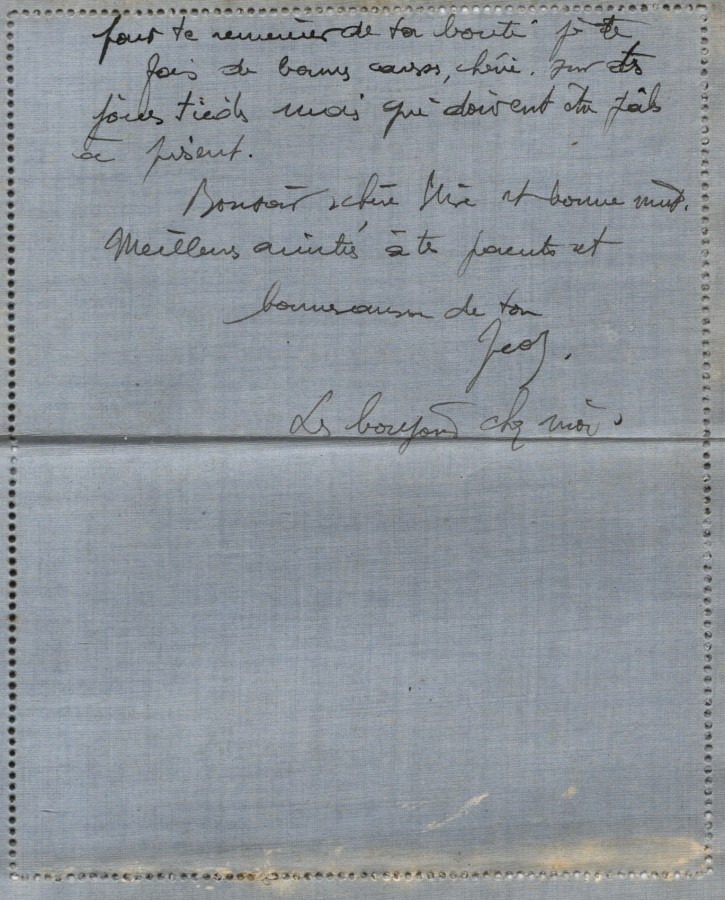 pour te remercier de ta bonté je te
fais de bonnes caresses, chérie. sur tes
joues tièdes mais qui doivent être pâles
à présent.
Bonsoir chère et bonne nuit.
Meilleurs amitiés à tes parents et
bonnes caresses de ton
Les chez moi